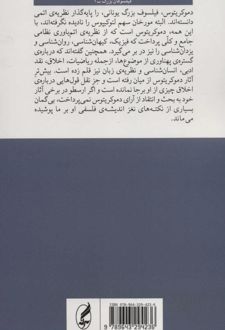 فیلسوفان بزرگ ـ ۱
دموکریتوس، فیلسوف بزرگ یونانی، را پایه‌گذار نظریه‌ی اتمی
دانسته‌اند. البته مورخان سهم لئوکیپوس را نادیده نگرفته‌اند، با
این همه، دموکریتوس است که از نظریه‌ی اتم‌باوری نظامی
جامع و کلی پرداخت که فیزیک، کیهان‌شناسی، روان‌شناسی و
یزدان‌شناسی را نیز در بر می‌گیرد. همچنین گفته‌اند که درباره‌ی
گستره‌ی پهناوری از موضوع‌ها، ازجمله ریاضیات، اخلاق، نقد
ادبی، انسان‌شناسی و نظریه‌ی زبان نیز قلم زده است. بیش‌تر
آثار دموکریتوس از میان رفته و جز نقل قول‌هایی درباره‌ی
اخلاق چیزی از او برجا نمانده است و اگر ارسطو در برخی آثار
خود به بحث و انتقاد از آرای دموکریتوس نمی‌پرداخت، بی‌گمان
بسیاری از نکته‌های نغز اندیشه‌ی فلسفی او بر ما پوشیده
می‌ماند.
9 789643 294236